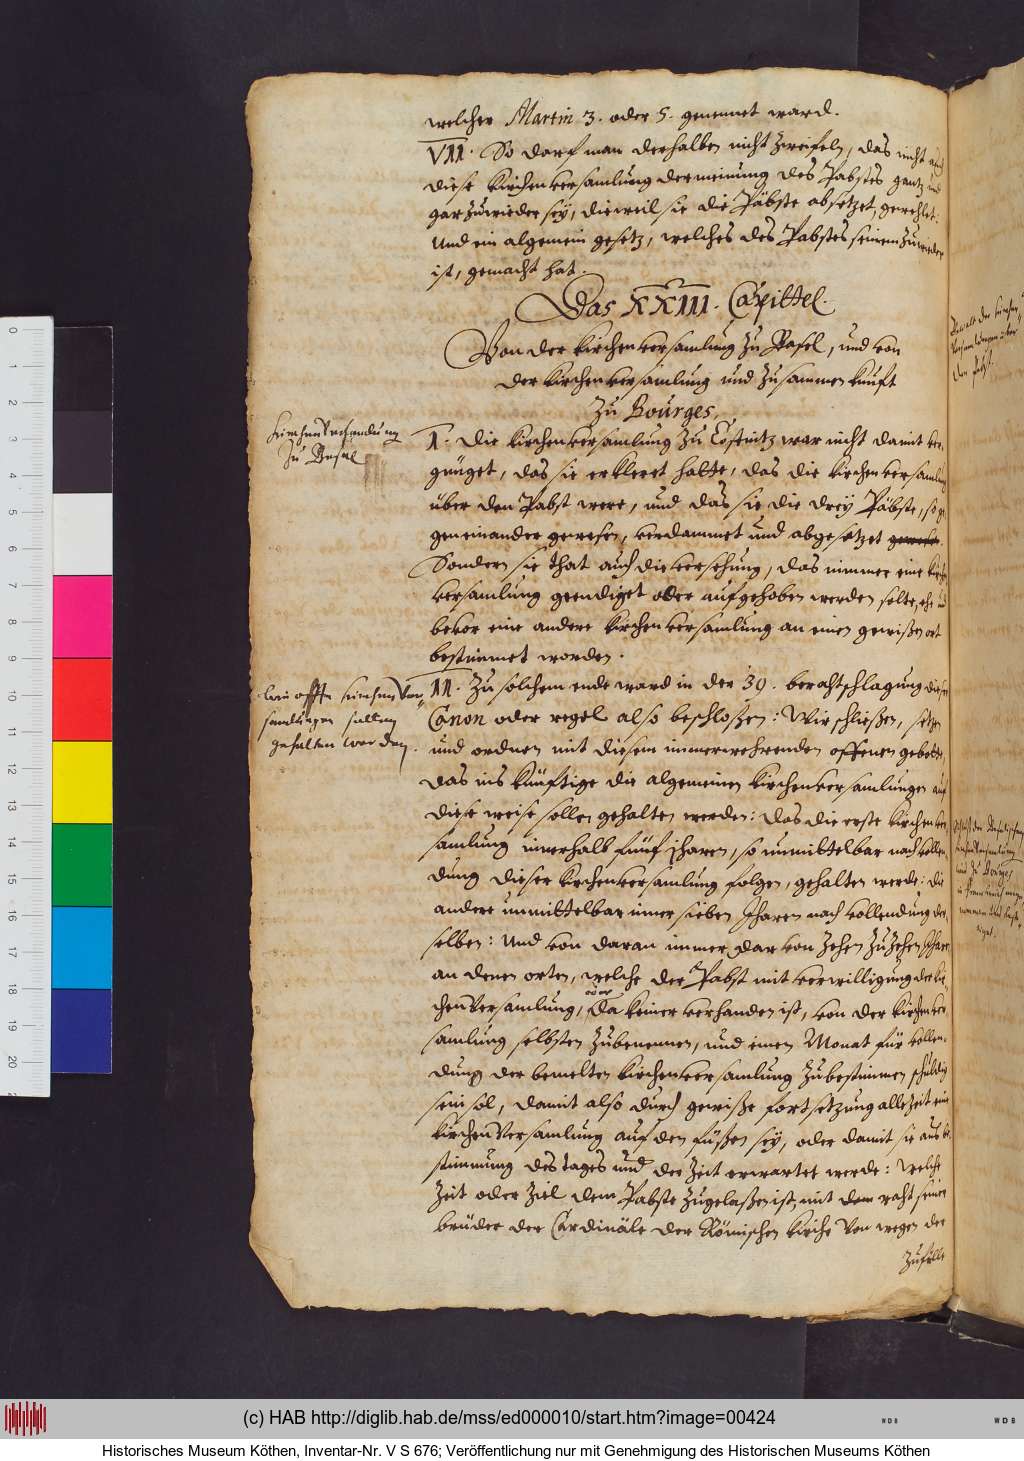 welcher Martin 3. oder 5. genennet ward.
VII. So darf man derhalben nicht zweifeln, das nicht auch
diese kirchenversamlung der meinung des Pabstes gantz und
gar zuwieder sey, dieweil sie die Päbste absetzet, gewehlet:
Und ein algemein gesetz, welches des Pabstes seinem zuwieder
ist, gemacht hat.
Das XXIII. Capittel.
Von der kirchenversamlung zu Basel, und von
der kirchenversamlung und zusammenkunft
zu Bourges.
kirchenversamlung
zu Basel
I. Die kirchenversamlung zu Costnitz war nicht damit ver-
gnüget, das sie erkleret hatte, das die kirchenversamlung
über den Pabst were, und das sie die drey Päbste, so ge-
gen einander gewesen, verdammet und abgesetzet gewesen.
Sondern sie that auch die versehung, das nimmer eine kirchen-
versamlung geendiget oder aufgehoben werden solte, ehe und
bevor eine andere kirchenversamlung an einen gewißen ort
bestimmet worden.
Wie offte kirchenver-
samlungen sollen
gehalten werden.
II. Zu solchem ende ward in der 39. berahtschlagung dieser
Canon oder regel also beschloßen: Wir schließen, setzen
und ordnen mit diesem immerwehrenden offenen gebotte,
das ins künftige die algemeinen kirchenversamlungen auf
diese weise sollen gehalten werden: das die erste kirchenver-
samlung innerhalb fünf jharen, so unmittelbar nach vollen-
dung dieser kirchenversamlung folgen, gehalten werde: die
andere unmittelbar inner sieben Jharen nach vollendung der-
selben: Und von daran immer dar von zehen zu zehen Jharen
an denen orten, welche der Pabst mit verwilligung der kir-
oder
chenversamlung, da keiner verhanden ist, von der kirchenver-
samlung selbsten zubenennen, und einen Monat für vollen-
dung der bemelten kirchenversamlung zubestimmen schuldig
sein sol, damit also durch gewiße fortsetzung allezeit eine
kirchenversamlung auf den füßen sey, oder damit sie aus be-
stimmung des tages und der zeit erwartet werde: welche
zeit oder ziel dem Pabste zugelaßen ist, mit dem raht seiner
brüder der Cardinäle der Römischen kirche von wegen der
zufälle
Gewalt der kirchen-
versamlungen über
den Pabst.
zu Bourges
(c) HAB http://diglib.hab.de/mss/ed000010/start.htm?image=00424
WDB
WDB
Historisches Museum Köthen, Inventar-Nr. V S 676; Veröffentlichung nur mit Genehmigung des Historischen Museums Köthen